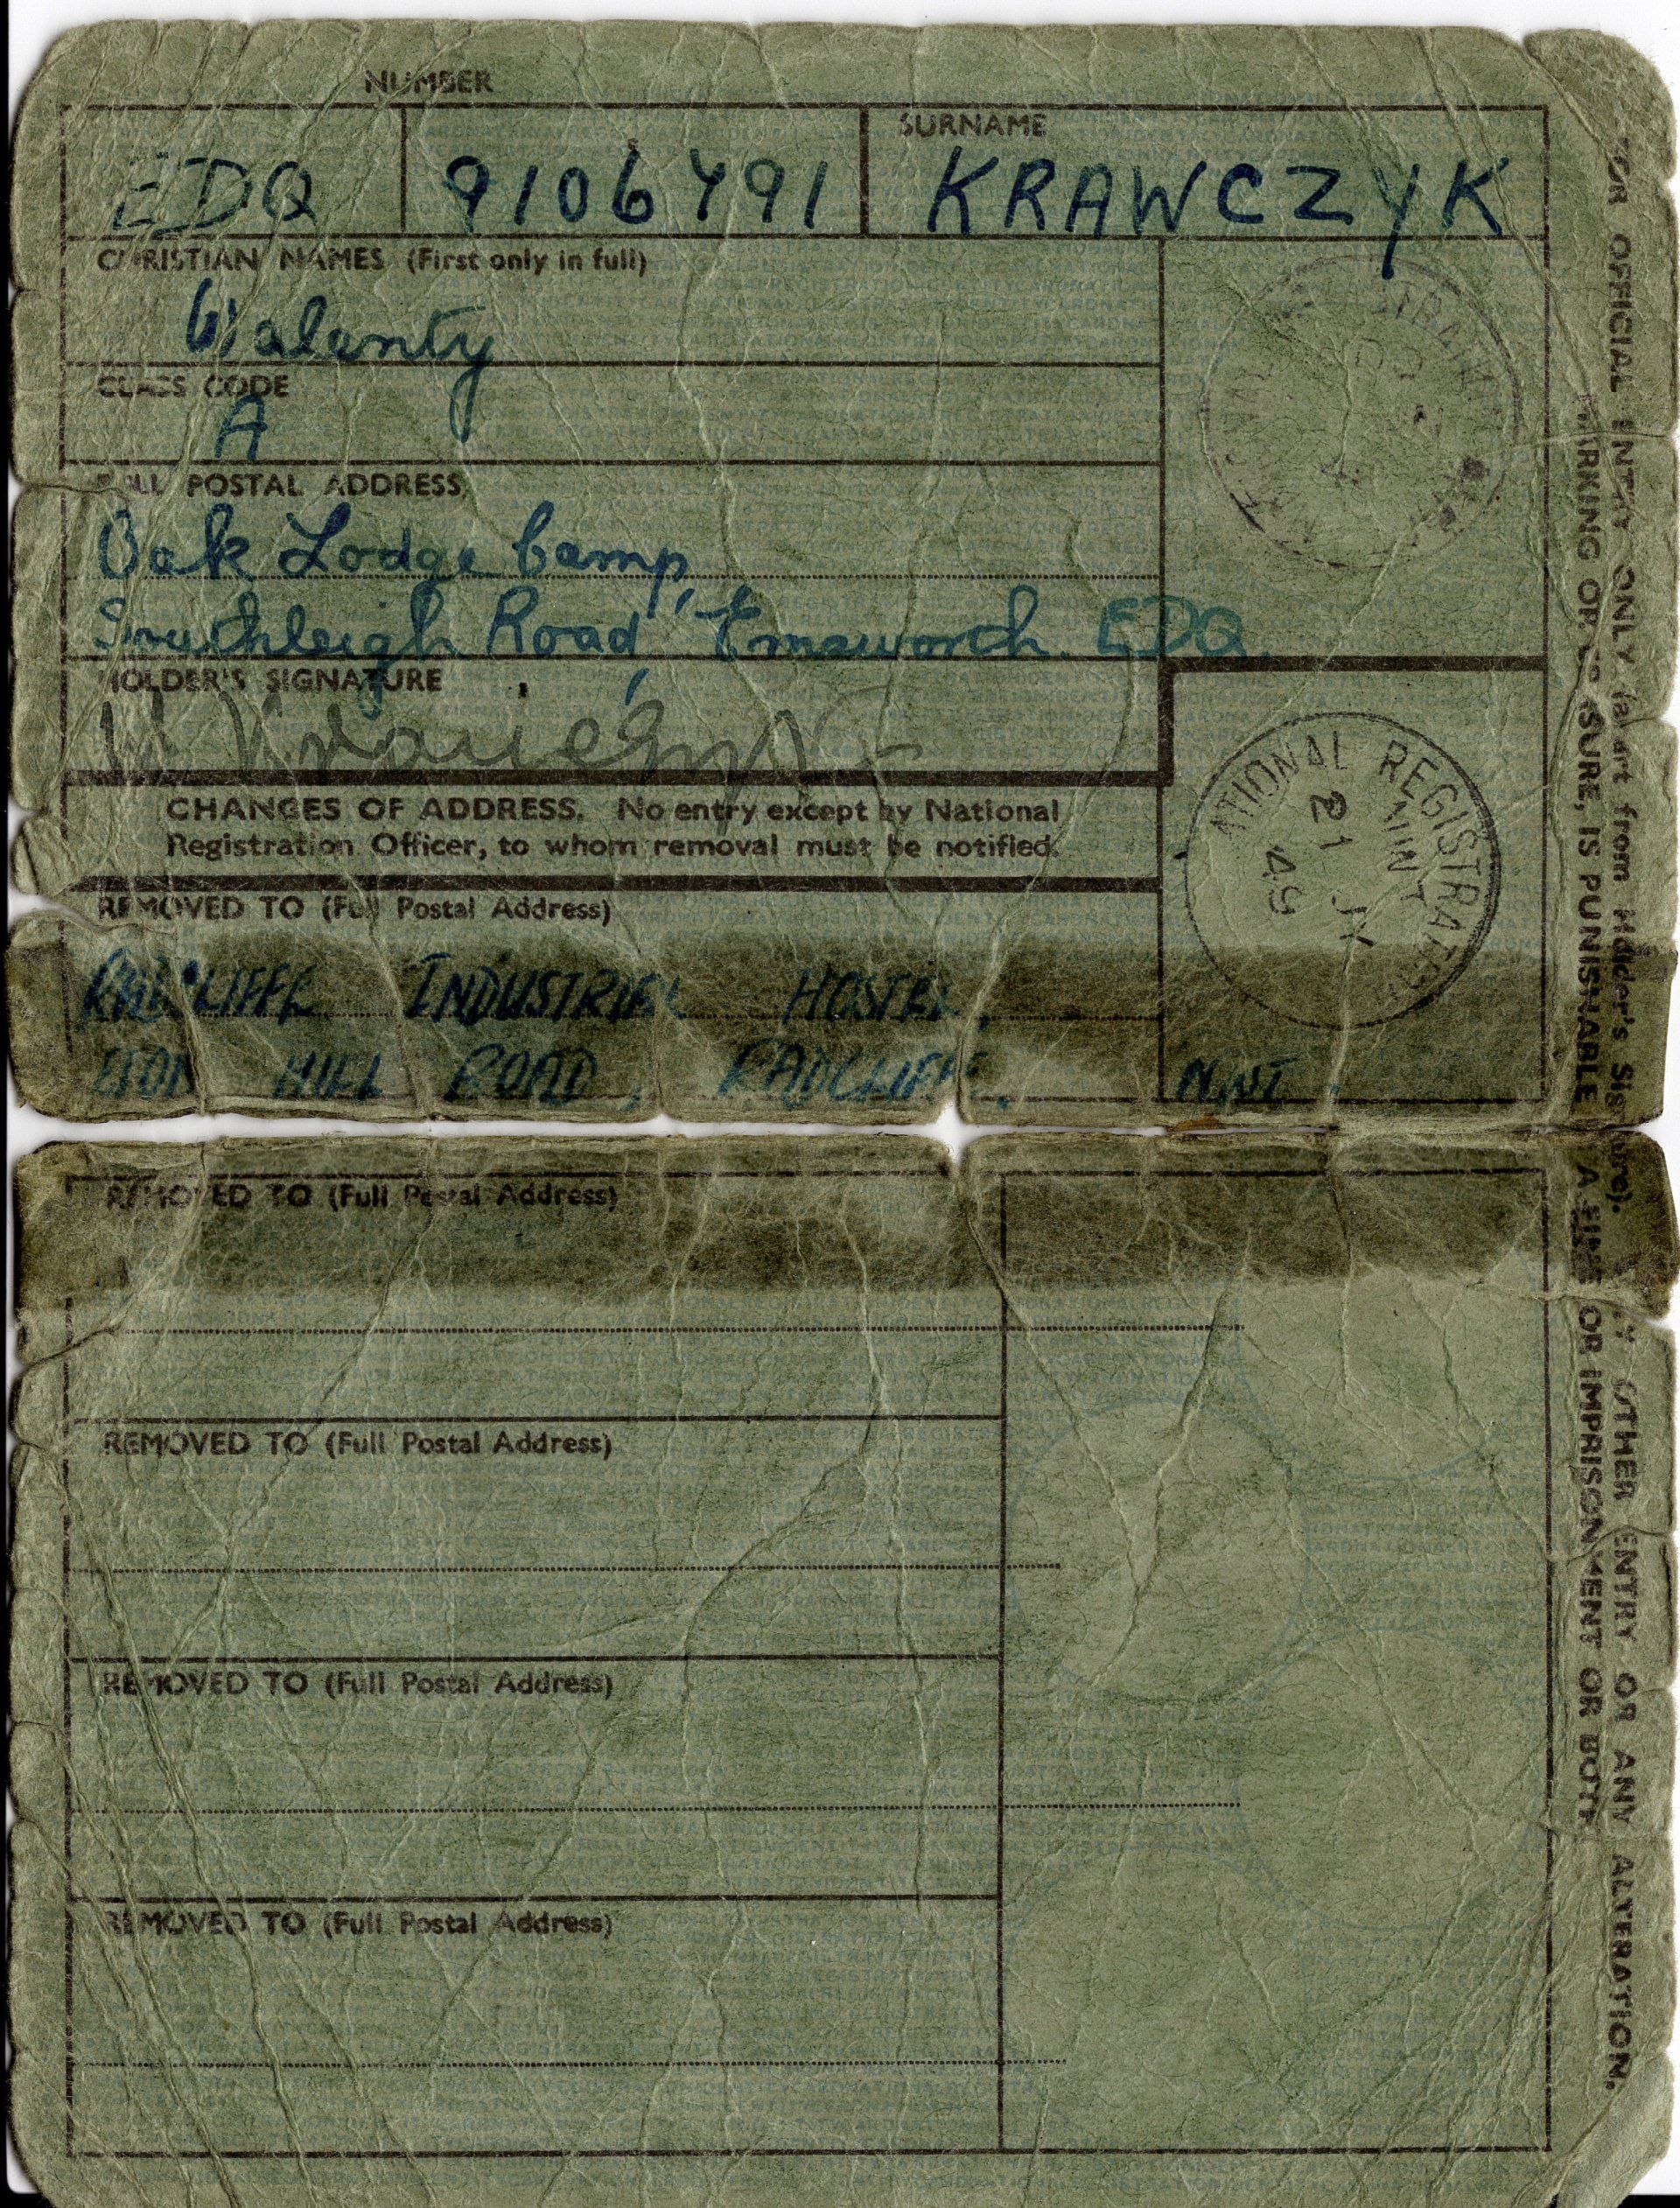 NUMBER
EDQ 9106491
SURNAME
KRAWCZYK
CHRISTIAN NAMES (First only in full)
Walenty
CLASS CODE
A
FULL POSTAL ADDRESS
Oak Lodge Camp,
Southleigh Road, Emsworth. EDQ.
HOLDER'S SIGNATURE
CHANGES OF ADDRESS. No entry except by National
Registration Officer, to whom removal must be notified.
NATIONAL REGISTRATION
NWNT
21 JY
49
REMOVED TO (Full Postal Address)
RADCLIFFE INDUSTRIAL HOSTEL,
HILL ROAD, RADCLIFFE.
REMOVED TO (Full Postal Address)
REMOVED TO (Full Postal Address)
REMOVED TO (Full Postal Address)
REMOVED TO (Full Postal Address)
FOR OFFICIAL ENTRY ONLY (apart from Holder's Signature). ANY OTHER ENTRY OR ANY ALTERATION,
MARKING OR ERASURE, IS PUNISHABLE BY A FINE OR IMPRISONMENT OR BOTH